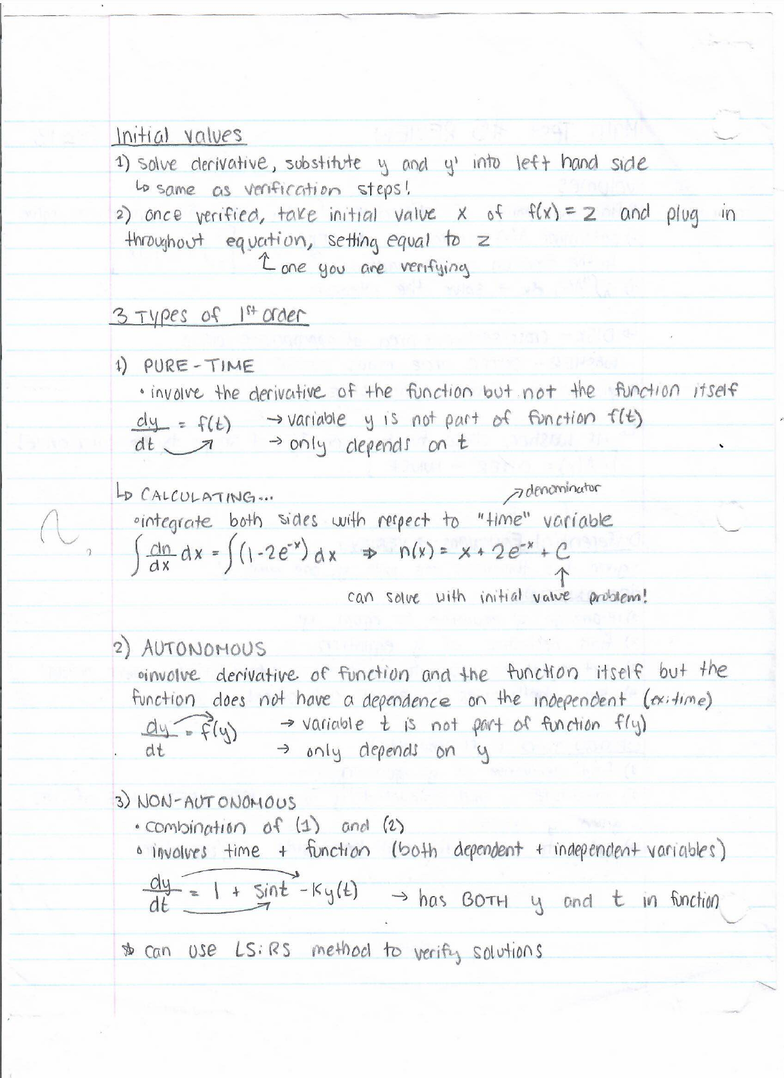 Initial values
1) solve derivative, substitute y and y' into left hand side
↳ same as verification steps!
2) once verified, take initial value x of f(x) = z and plug in
throughout equation, setting equal to z
↑ one you are verifying
3 Types of 1st order
1) PURE-TIME
• involve the derivative of the function but not the function itself
dy/dt = f(t) → variable y is not part of function f(t)
→ only depends on t
↳ CALCULATING... ↗ denominator
• integrate both sides with respect to "time" variable
∫ dn/dx dx = ∫(1-2e^-x) dx ⇒ n(x) = x + 2e^-x + C
↑
can solve with initial value problem!
2) AUTONOMOUS
• involve derivative of function and the function itself but the
function does not have a dependence on the independent (ex: time)
dy/dt = f(y) → variable t is not part of function f(y)
→ only depends on y
3) NON-AUTONOMOUS
• combination of (1) and (2)
• involves time + function (both dependent + independent variables)
dy/dt = 1 + sint - Ky(t) → has BOTH y and t in function
* can use LS:RS method to verify solutions